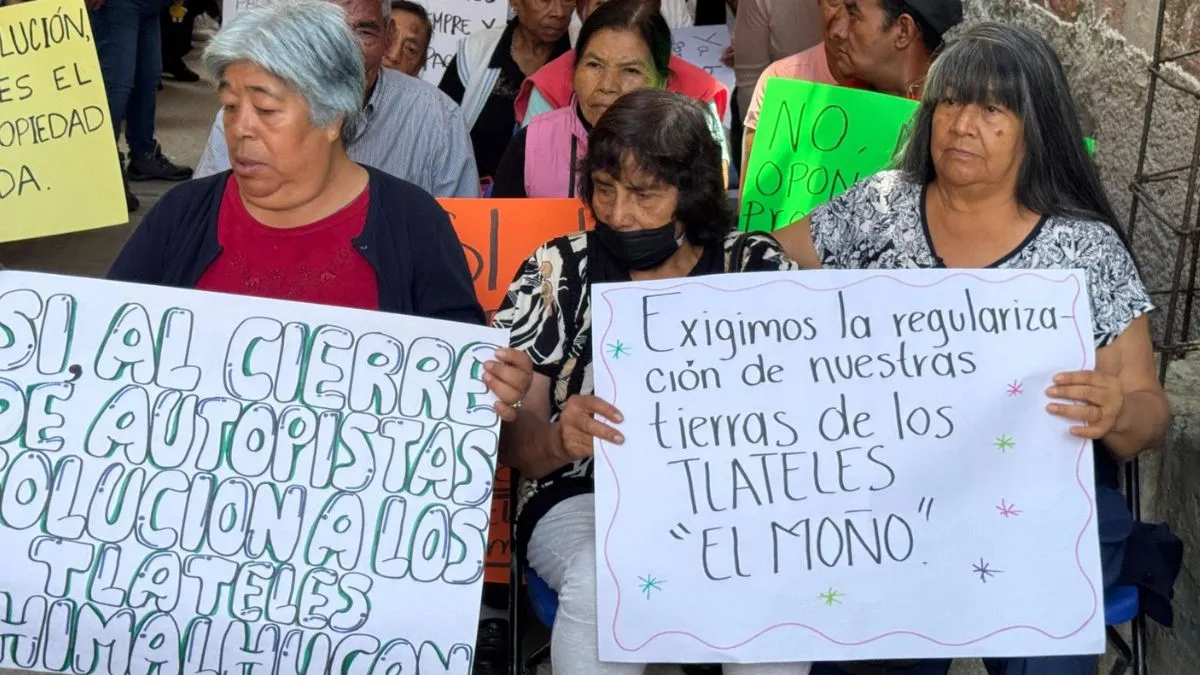 OLUCIÓN,
ES EL
OPIEDAD
DA.
SIEMPRE Y
Ya
NO,
OPON
Pr
SI
SI, AL CIERRE
DE AUTOPISTAS
SOLUCION A LOS
TLATELES
CHIMALHUCAN
Exigimos la regulariza-
ción de nuestras
tierras de los
TLATELES
"EL MOÑO".